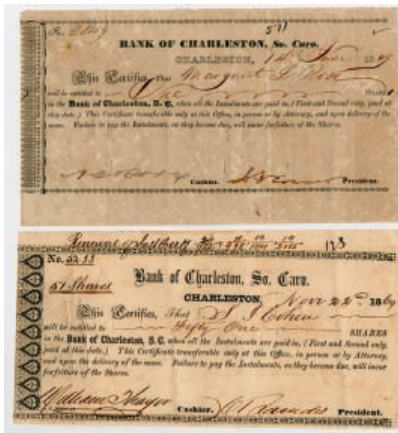 No.
BANK OF CHARLESTON, So. Caro.
CHARLESTON, 1st June 18
This Certifies, That Margaret
will be entitled to One Share
in the Bank of Charleston, S. C. when all the Instalments are paid in, (First and Second only, paid at
this date.) This Certificate transferable only at this Office, in person or by Attorney, and upon delivery of the
same. Failure to pay the Instalments, as they become due, will incur forfeiture of the Shares.
Cashier. President.
Renewal of
No. 5255
51 Shares
Bank of Charleston, So. Caro.
CHARLESTON, Novr 22nd 186
This Certifies, That S. I. Cohen
will be entitled to Fifty One SHARES
in the Bank of Charleston, S. C. when all the Instalments are paid in, (First and Second only,
paid at this date.) This Certificate transferable only at this Office, in person or by Attorney,
and upon delivery of the same. Failure to pay the Instalments, as they become due, will incur
forfeiture of the Shares.
William Thayer Cashier. President.